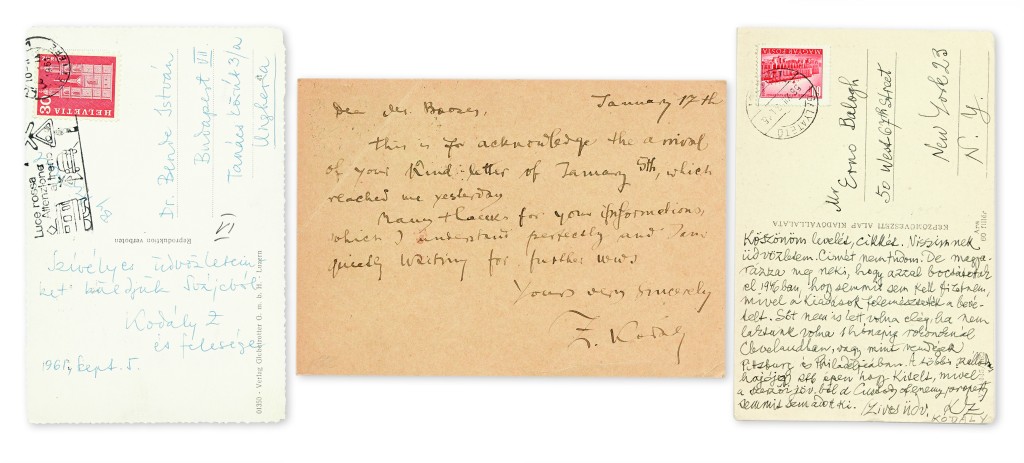 HELVETIA
30
Luce rossa
Attenzione
al treno
Dr. Bende István
Budapest VII
Tanács körút 3/a
Ungheria
VI
Reproduktion verboten
Szívélyes üdvözletein
ket küldjük Svájcból
Kodály Z
és felesége
Sept. 5.
Verlag Globetrotter G. m. b. H. - Luzern
January 17th
Dear Mr.
this is to acknowledge the arrival
of your kind letter of January 5th, which
reached me yesterday
Many thanks for your informations,
which I understand perfectly and I am
quietly waiting for further news
Yours very sincerely
Z. Kodály
MAGYAR POSTA
Mr
Erno Balogh
50 West 67th Street
New York 23
N. Y.
KÉPZŐMŰVÉSZETI ALAP KIADÓVÁLLALATA
Ára
60 fillér
Köszönöm levelét, cikkét.
üdvözletem. Címét nem tudom. De magya-
rázza meg neki, hogy azzal
el 1946ban, hogy semmit sem kell fizetnem,
mivel a kiadások felemésztették a bevé-
telt. Sőt nem is lett volna elég, ha nem
laktunk volna rokonoknál
Clevelandban, vagy mint vendégek
Pittsburg és Philadelphiában. A többi
hogy kitelt, mivel
semmit sem adott ki. Szives üdv. KZ
KODALY